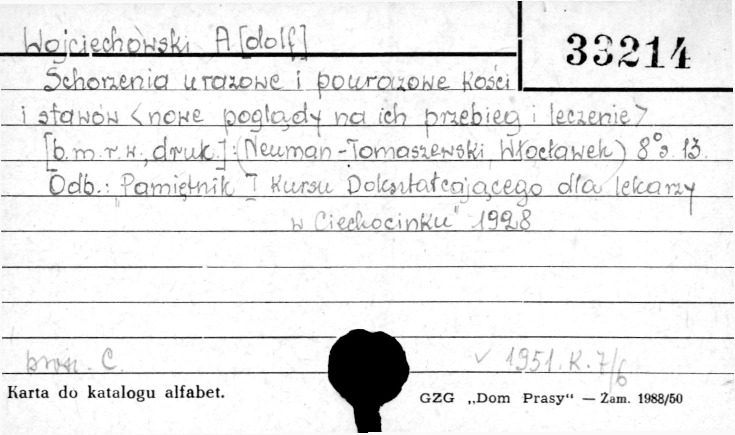 Wojciechowski A[dolf]
33214
Schorzenia urazowe i pourazowe kości
i stawów <nowe poglądy na ich przebieg i leczenie>
[b.m.r.w., druk.]: (Neuman-Tomaszewski, Włocławek) 8° s. 13.
Odb.: "Pamiętnik I Kursu Dokształcającego dla lekarzy
w Ciechocinku" 1928
C.
✓ 1951. K. 7/6
Karta do katalogu alfabet.
GZG „Dom Prasy“ — Zam. 1988/50